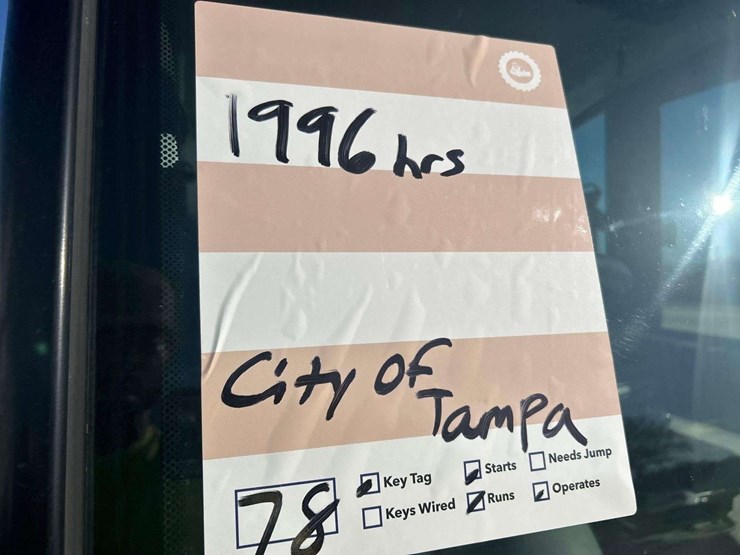 1996 hrs
City of
Tampa
78
Key Tag
Starts
Needs Jump
Keys Wired
Runs
Operates